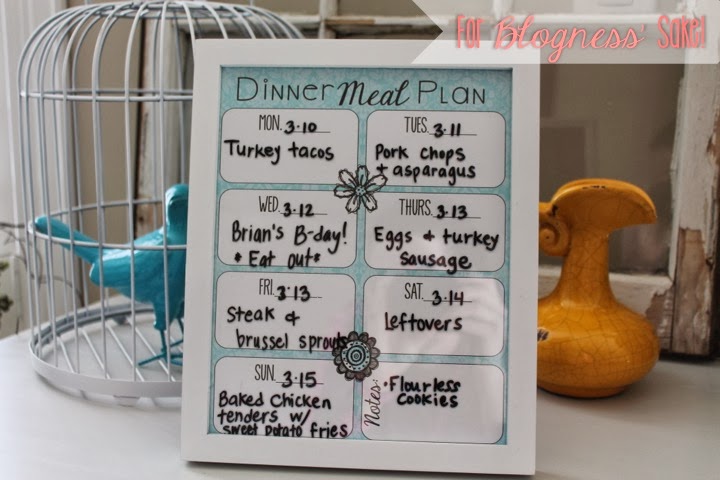 For Blogness' Sake!
Dinner Meal Plan
MON. 3.10
Turkey tacos
TUES. 3.11
Pork chops
+ asparagus
WED. 3.12
Brian's B-day!
* Eat out*
THURS. 3.13
Eggs & turkey
sausage
FRI. 3.13
Steak &
brussel sprouts
SAT. 3.14
Leftovers
SUN. 3.15
Baked Chicken
tenders w/
sweet potato fries
Notes:
•Flourless
Cookies